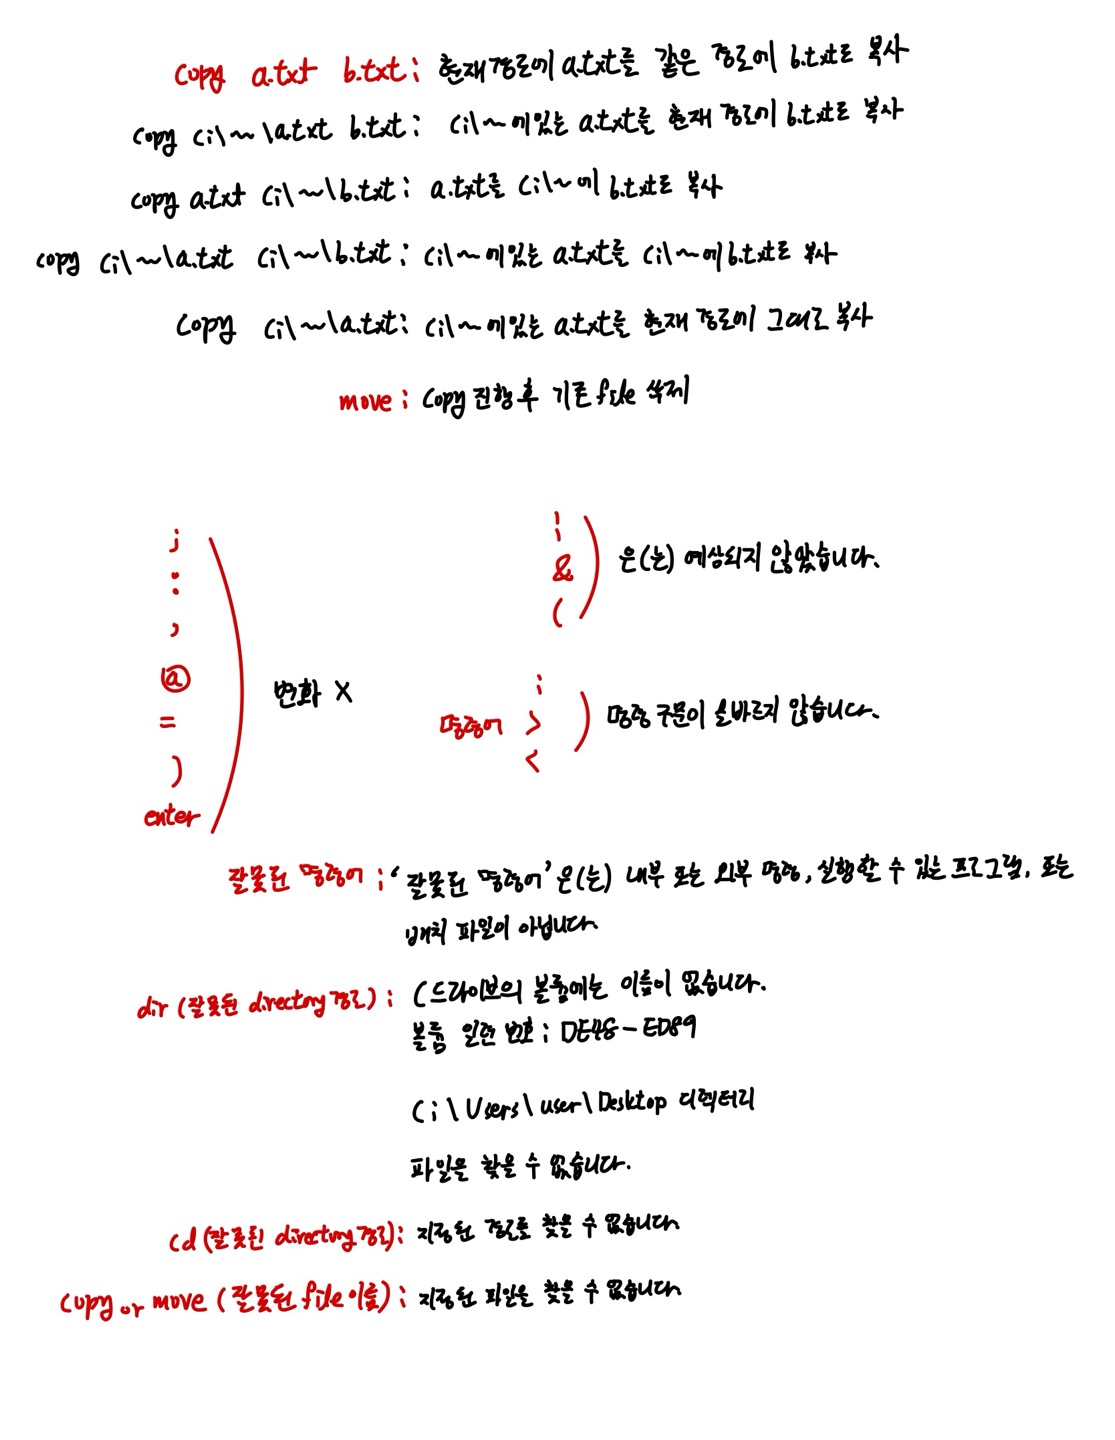 copy a.txt b.txt : 현재경로에 a.txt를 같은 경로에 b.txt로 복사
copy c:\~\a.txt b.txt : c:\~에있는 a.txt를 현재 경로에 b.txt로 복사
copy a.txt c:\~\b.txt : a.txt를 c:\~에 b.txt로 복사
copy c:\~\a.txt c:\~\b.txt : c:\~에있는 a.txt를 c:\~에 b.txt로 복사
copy c:\~\a.txt : c:\~에있는 a.txt를 현재 경로에 그대로 복사
move : copy 진행 후 기존 file 삭제
;
:
,
@
=
)
enter
변화 X
|
&
(
은(는) 예상되지 않았습니다.
명령어
>
<
명령 구문이 올바르지 않습니다.
잘못된 명령어 : '잘못된 명령어'은(는) 내부 또는 외부 명령, 실행할 수 있는 프로그램, 또는
배치 파일이 아닙니다.
dir (잘못된 directory 경로) : C드라이브의 볼륨에는 이름이 없습니다.
볼륨 일련 번호 : DE48-ED89
C:\Users\user\Desktop 디렉터리
파일을 찾을 수 없습니다.
cd (잘못된 directory 경로) : 지정된 경로를 찾을 수 없습니다
copy or move (잘못된 file 이름) : 지정된 파일을 찾을 수 없습니다